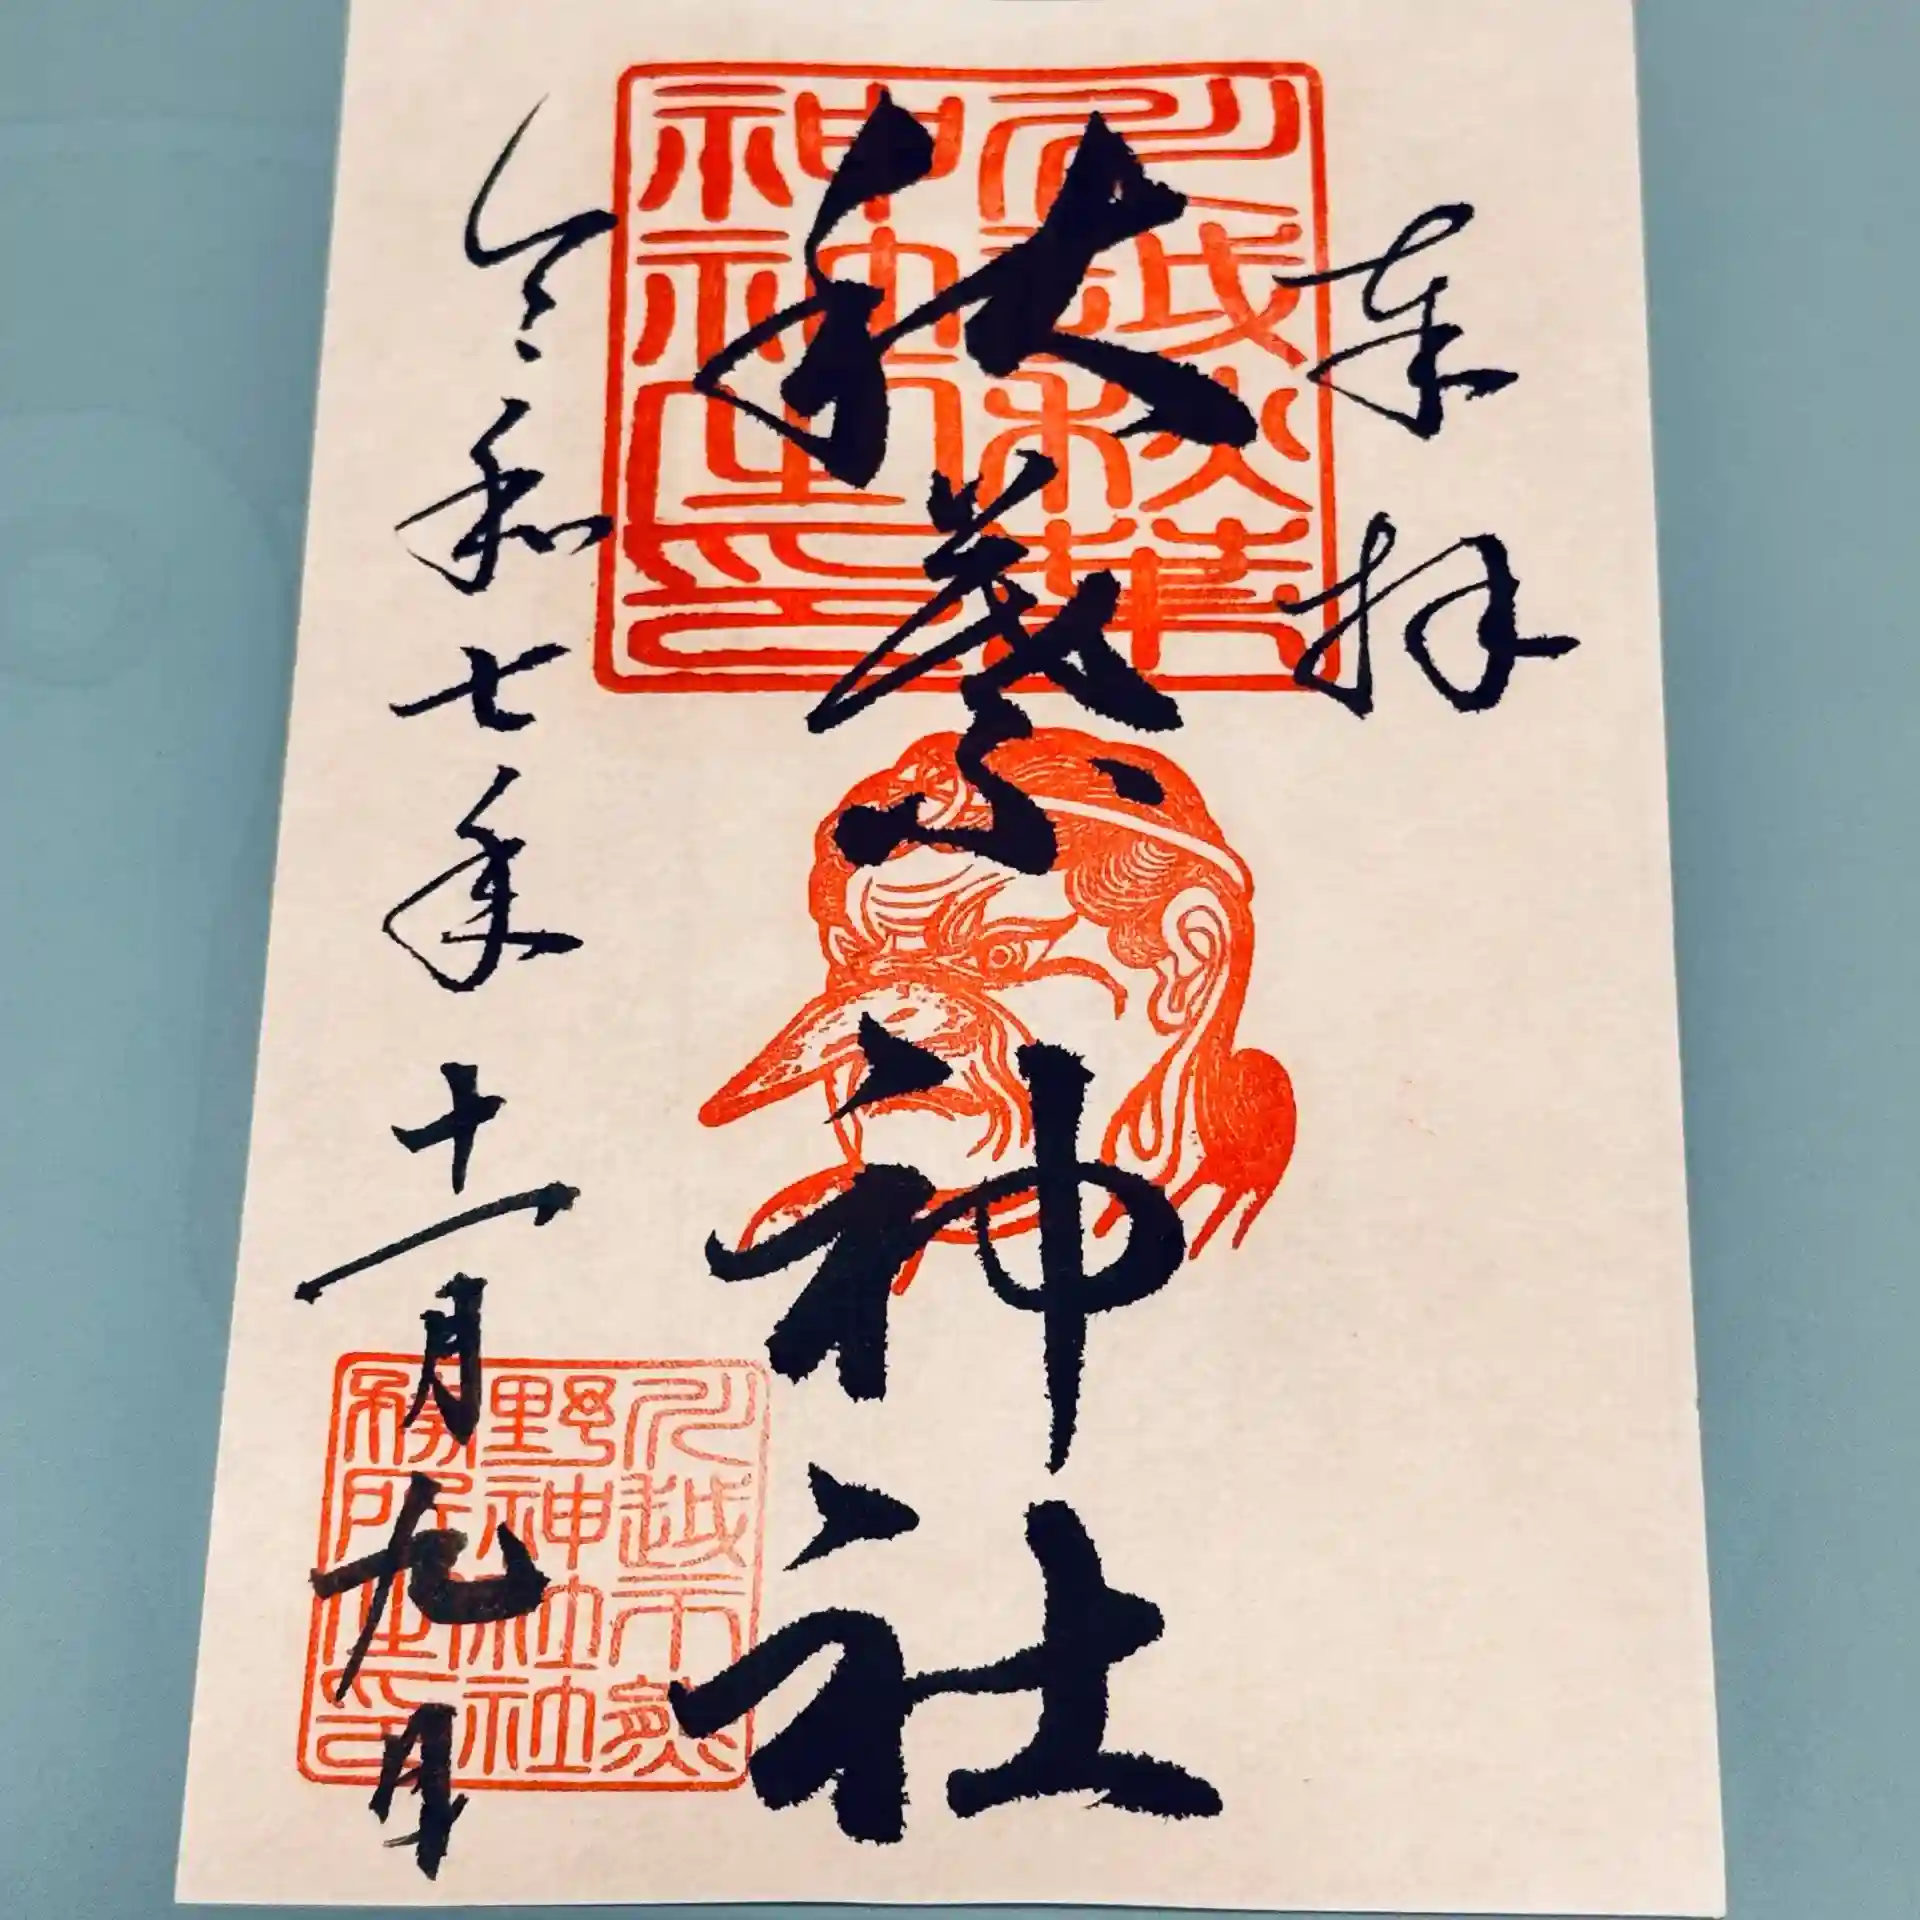 奉拝
秋葉神社
令和七年十一月九日
川越秋葉
神社神璽印
川越市熊
野神社社
務所之印